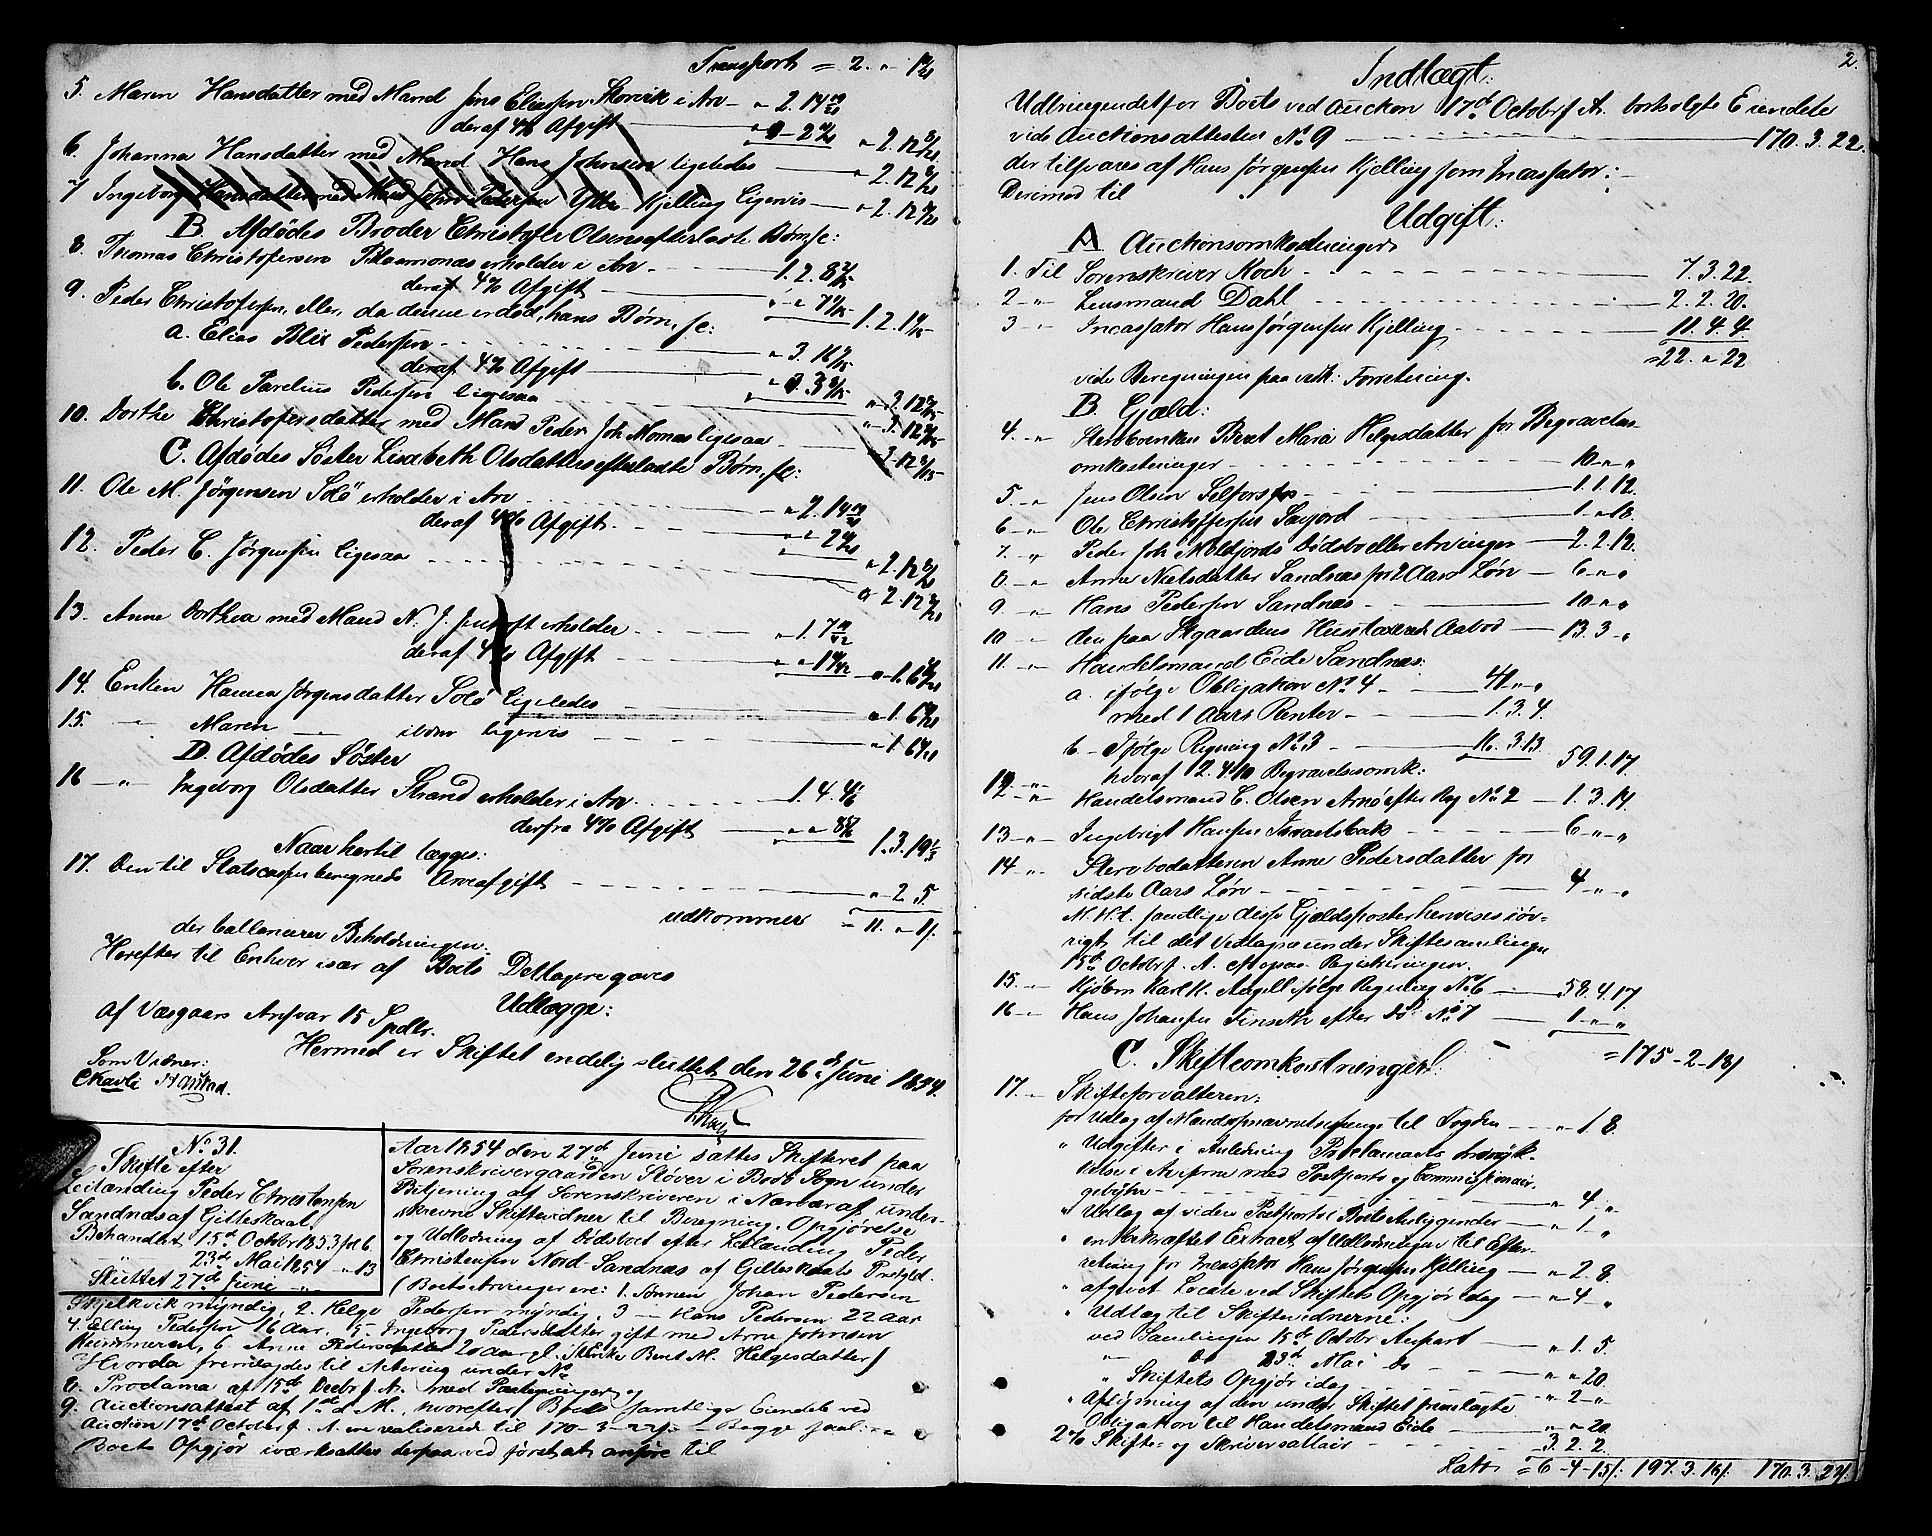 Transport = 2. " 1
5. Maren Hansdatter med Mand Jens Eliassen Skorvik i Arv - " 2. 14
deraf 4% Afgift " 0 - 2 " 2. 12
6. Johanna Hansdatter med Mand Hans Johnsen ligeledes " 2. 12
7 Ingeborg Hansdatter med Mand John Pedersen Ytre Kjelling ligevis " 2. 12
B. Afdødes Broder Christofer Olsens efterladte Børn, sc:
8. Thomas Christophersen erholder i Arv 1. 2. 8
deraf 4% Afgift " " 7 1. 2. 1
9. Peder Christofersen, eller, da denne er død, hans Børn, sc:
a. Elias Blix Pedersen " 3. 16
deraf 4% Afgift " 0. 3
b. Ole Parelius Pedersen ligesaa " 3. 12
10. Dorthe Christofersdatter med Mand Peder Joh. Mornæs ligesaa " 3. 12
C. Afdødes Søster Lisabeth Olsdatters efterladte Børn, sc:
11. Ole M. Jörgensen Solö erholder i Arv " 2. 14
deraf 4% Afgift " " 2 " 2. 12
12. Peder C. Jörgensen ligesaa " 2. 12
13. Anne Dorthea med Mand N. J. erholder " 1. 7
deraf 4% Afgift " " 1 " 1. 6
14. Enken Hanna Jörgensdatter Solö ligeledes " 1. 6
15. " Maren " ibdm ligevis " 1. 6
D. Afdødes Søster
16 " Ingeborg Olsdatter Strand erholder i Arv 1. 4. 4
derfra 4% Afgift " " 8 1. 3. 19
Naar hertil lægges:
17. Den til Statscassen beregnede Arveafgift " 2 5.
udkommer = 11. " 11.
der ballancerer Beholdningen.
Herefter til Enhver især af Boets Deeltagere gaves
Udlægge:
af Væsgaars Ansvar 15 Spdlr.
Hermed er Skiftet endelig sluttet den 26de Juni 1854.
Som Vidner:
Koch
No 31.
Skifte efter
Leilænding Peder Christensen
Sandnæs af Gilleskaal,
Behandlet 15de Octobr 1853 fol 6
" 23de Mai 1854 " 13
Sluttet 27de Juni
Aar 1854 den 27de Juni sattes Skifteret paa
Sorenskrivergaarden Støver i Bodø Sogn under
Betjening af Sorenskriveren i Nærvær af under-
skrevne Skiftevidner til Beregning, Opgjörelse
og Udlodning af Dødsboet efter Leilænding Peder
Christensen Nord-Sandnæs af Gilleskaals Præstgld.
(Boets Arvinger ere: 1. Sønnen Johan Pedersen
Skjelkvik myndig, 2. Helge Pedersen myndig, 3 - Hans Pedersen 22 Aar
4. Elling Pedersen 16 Aar, 5- Ingeborg Pedersdatter gift med Arne Johnsen
6. Anne Pedersdatter 20 Aar, Enke Beret M. Helgesdatter)
Hvorda fremlagdes til Actering under No
8. Proclama af 15de Decbr f. A. med Paategninger og
9. Auctionsattest af 1ste d. M., hvorefter Boets samtlige Eiendele ved
Auction 17de Octobr f. A. ere realiserede til 170-3-22
Boets Opgjör iværksattes derpaa ved først at anføre til
2.
Indtægt:
Udbringendet for Boets ved Auction 17de Octobr f. A. bortsolgte Eiendele
vide Auctionsattesten No 9 170. 3. 22.
der tilsvares af Hans Jörgensen Kjelling som Incassator;
Derimod til
Udgift:
A Auctionsomkostninger
1. Til Sorenskriver Koch 7. 3. 22.
2 " Lensmand Dahl 2. 2. 20.
3 " Incassator Hans Jörgensen Kjelling 11. 4. 4
= 22. " 22
vide Beregningen paa vedk: Forretning.
B. Gjæld:
4. " Sterboenken Beret Maria Helgesdatter for Begravelses-
omkostninger 10 " "
5 " Jens Olsen Selfors 1. 1. 12.
6 " Ole Christoffersen Saxfjord 1 " 18.
7 " Peder Joh Moldjords Dødsbo eller Arvinger 2. 2. 12.
8 " Anne Nielsdatter Sandnæs for 2 Aars Løn 6 " "
9 " Hans Pedersen Sandnæs 10 " "
10 " den paa Gaardens Huse taxerede Aabod 13. 3 "
11 " Handelsmand Eide Sandnæs:
a. ifølge Obligation No 4 41 " "
med 1 Aars Renter 1. 3. 4.
b - Ifølge Regning No 3 16. 3. 13. 59. 1. 17.
hvoraf 12. 4. 10 Begravelsesomk:
12 " Handelsmand C. Olsen Arnø efter Reg No 2 1. 3. 14.
13 " Ingebrigt Hansen 6 " "
14 " Stervbodatteren Anne Pedersdatter for
sidste Aars Løn 4 " "
N. B. samtlige disse Gjældsposter henvises iøv-
rigt til det Vedtagne under Skiftesamlingen
15de Octobr f. A.
15 " Kjöbm Karl K. Angell ifölge Regning No 6 58. 4. 17.
16 " Hans Johansen Finseth efter do No 7 1 " "
= 175-2-13
C. Skifteomkostninger:
17. " Skifteforvalteren:
for Udlæg af til Fogden " 1 8.
" Udgifter i Anledning Proclamaets Indryk-
kelse i Aviserne med Postporto og Commissionair-
gebyhr " 4 "
" Udlæg af videre Postporto i Boets Anliggender " 1 "
" en bekræftet Extract af Udlodningen til Efter-
retning for Incassator Hans Jörgensen Kjelling " 2. 8.
" afgivet Locale ved Skiftets Opgjör idag " 4 "
" Udlæg til Skiftevidnerne:
ved Samlingen 15de Octobr Anpart " 1. 5.
" Do 23de Mai do " " 20.
" Skiftets Opgjör idag " 2 "
" Aflysning af den under Skiftet fremlagte
Obligation til Handelsmand Eide " " 20.
2% Skifte- og Skriversallair 3. 2. 2.
Lateris = 6-4-15 197. 3. 16 170. 3. 22